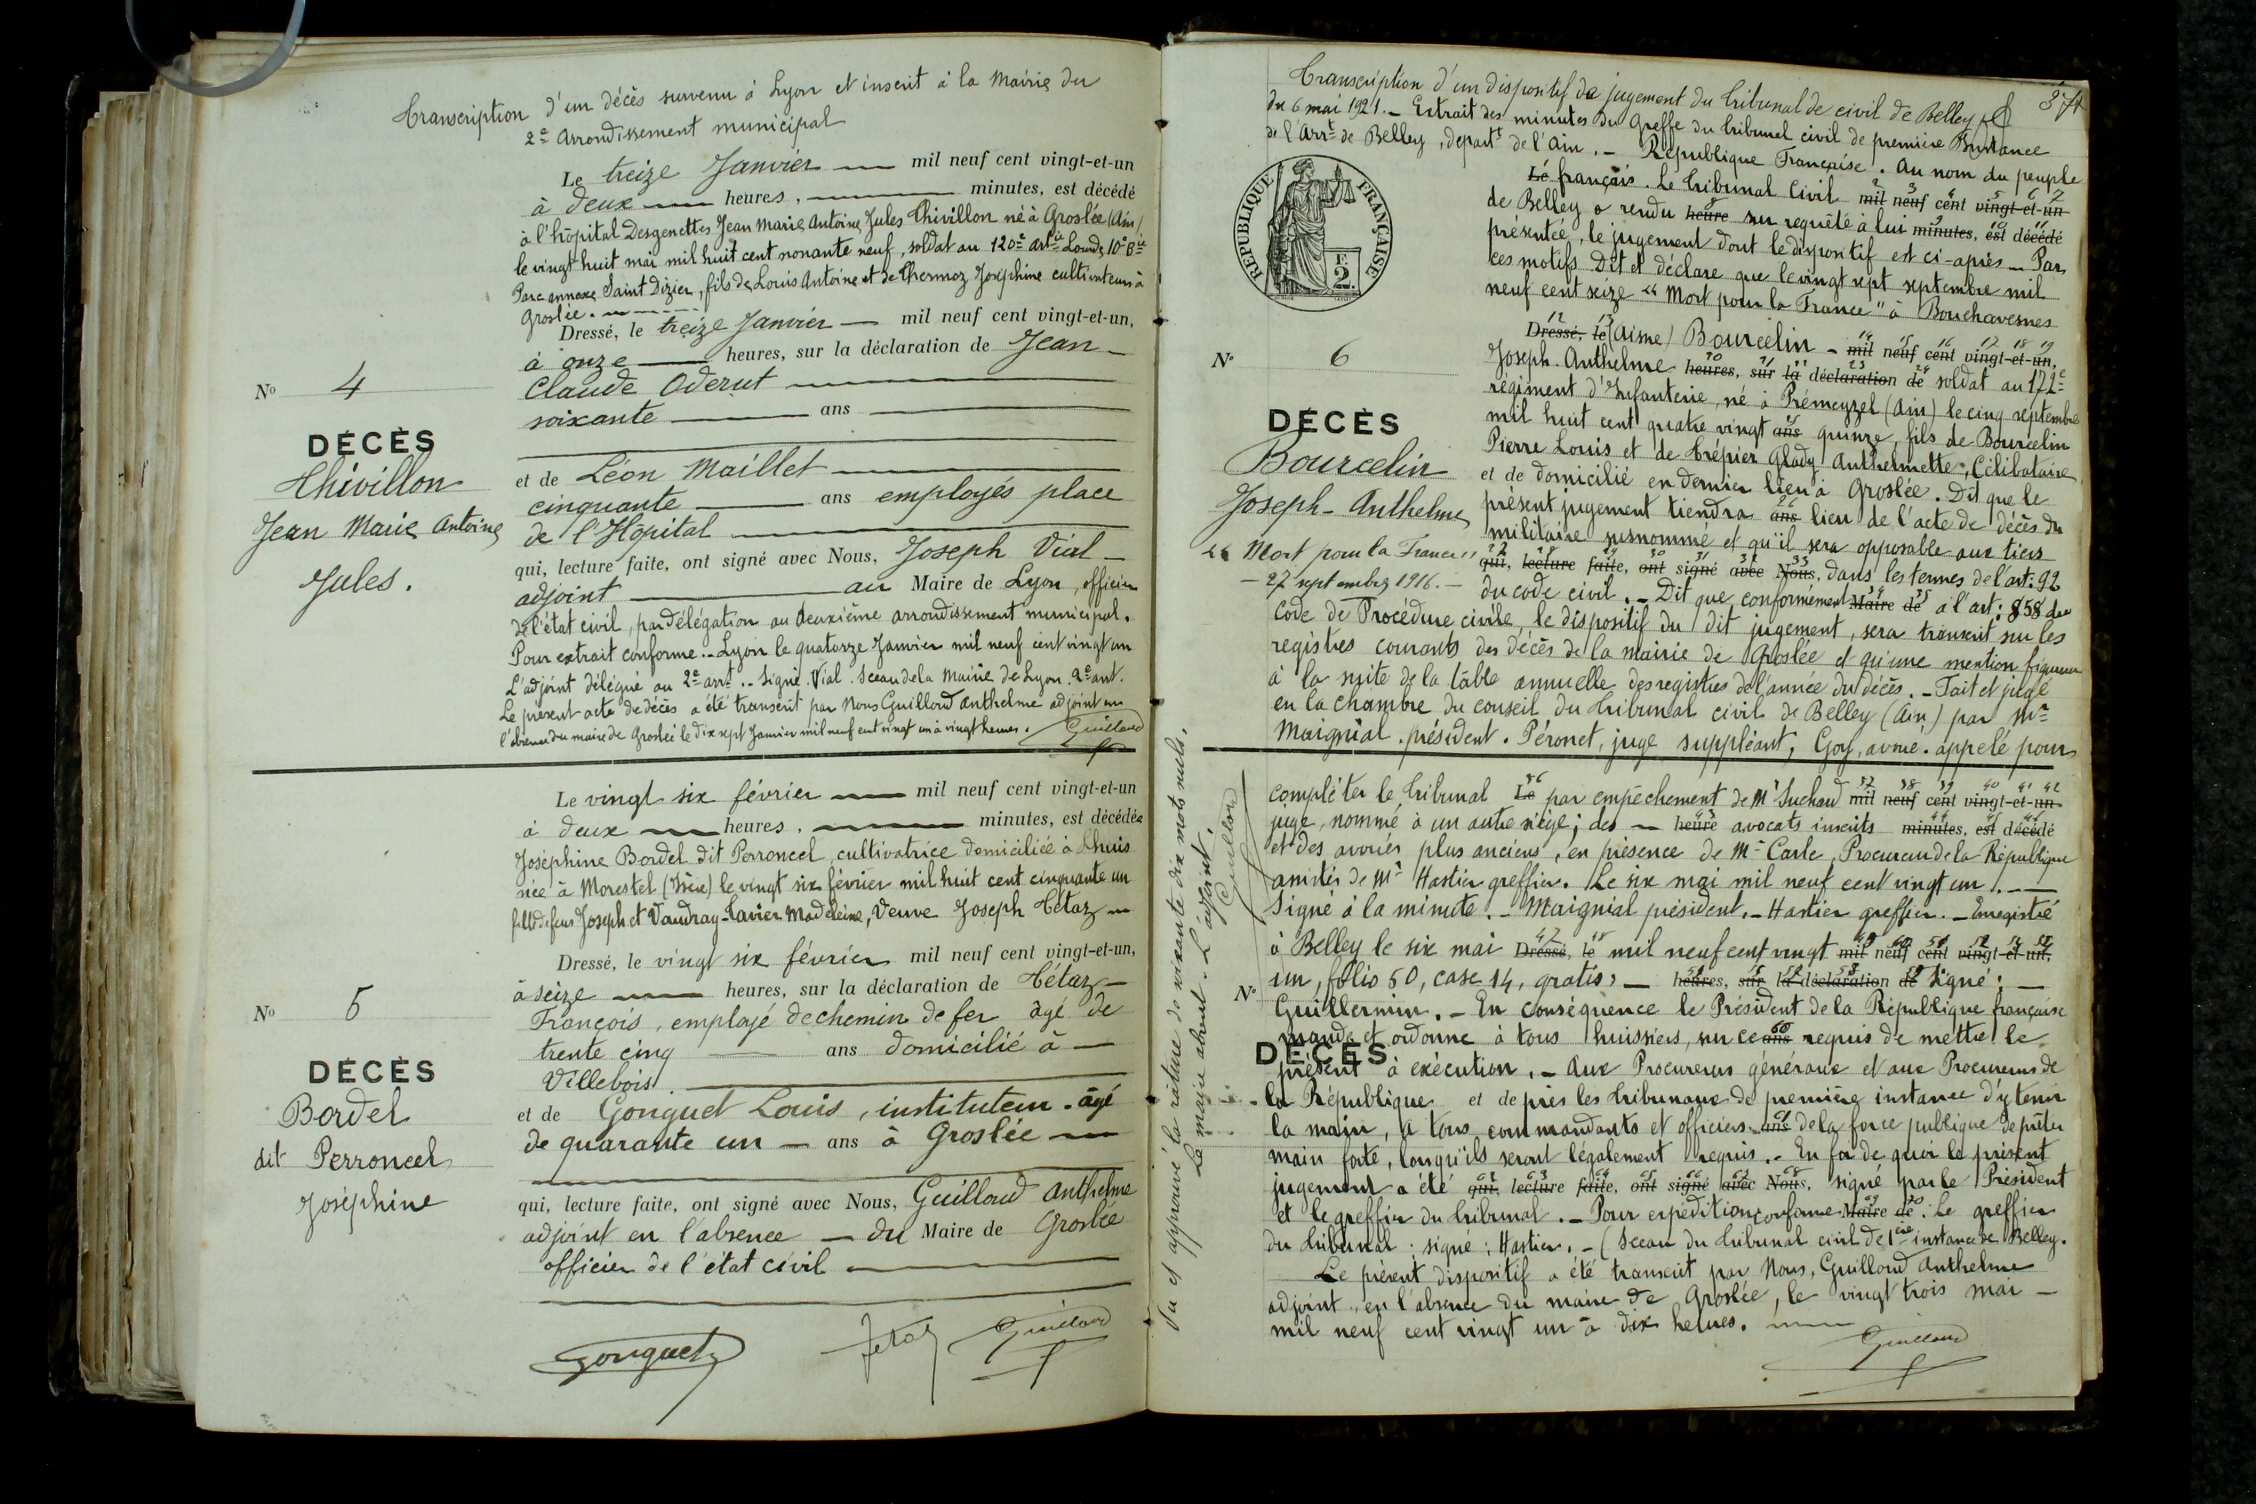 Transcription d'un décès survenu à Lyon et inscrit à la Mairie du
2e Arrondissement municipal
Le treize Janvier — mil neuf cent vingt-et-un
à deux — heures, — minutes, est décédé
à l'hôpital Desgenettes Jean Marie Antoine Jules Thivillon né à Groslée (Ain)
le vingt huit mai mil huit cent nonante neuf, soldat au 120e Artie Lourde, 10e Bie
Parc annexe Saint Dizier, fils de Louis Antoine et de Thermoz Joséphine cultivateurs à
Groslée. —
Dressé, le treize Janvier — mil neuf cent vingt-et-un,
à onze — heures, sur la déclaration de Jean —
Claude Oderut —
soixante — ans —
et de Léon Maillet —
cinquante — ans employés place
de l'Hôpital —
qui, lecture faite, ont signé avec Nous, Joseph Vial —
adjoint — au Maire de Lyon, officier
de l'état civil, par délégation au deuxième arrondissement municipal.
Pour extrait conforme. - Lyon le quatorze Janvier mil neuf cent vingt un
L'adjoint délégué au 2e arrt. - Signé. Vial. Sceau de la Mairie de Lyon. 2e arrt.
Le présent acte de décès a été transcrit par Nous Guilloud Anthelme adjoint en
l'absence du maire de Groslée le dix sept Janvier mil neuf cent vingt un à vingt heures. Guilloud
No 4
DÉCÈS
Thivillon
Jean Marie Antoine
Jules.
Le vingt six février — mil neuf cent vingt-et-un
à deux — heures, — minutes, est décédée
Joséphine Bordel dit Perroncel, cultivatrice domiciliée à Lhuis
née à Morestel (Isère) le vingt six février mil huit cent cinquante un
fille de feus Joseph et Vaudray-Xavier Madeleine, Veuve Joseph Tétaz —
Dressé, le vingt six février mil neuf cent vingt-et-un,
à seize — heures, sur la déclaration de Tétaz —
François, employé de chemin de fer âgé de
trente cinq — ans domicilié à —
Villebois. —
et de Gonguet Louis, instituteur. âgé
de quarante un — ans à Groslée —
qui, lecture faite, ont signé avec Nous, Guilloud Anthelme
adjoint en l'absence — du Maire de Groslée
officier de l'état civil —
Gonguet Tétaz Guilloud
No 5
DÉCÈS
Bordel
dit Perroncel
Joséphine
374
Transcription d'un dispositif de jugement du Tribunal de civil de Belley
du 6 mai 1921. - Extrait des minutes du Greffe du Tribunal civil de première Instance
de l'Arrt de Belley, départt de l'Ain. - République Française. Au nom du peuple
RÉPUBLIQUE FRANÇAISE
F. 2.
Le français. Le Tribunal Civil mil neuf cent vingt-et-un
de Belley a rendu heure sur requête à lui minutes, est décédé
présentée, le jugement dont le dispositif est ci-après — Par
ces motifs Dit et déclare que le vingt sept septembre mil
neuf cent seize "Mort pour la France" à Bouchavesnes
Dressé, le (Aisne) Bourcelin — mil neuf cent vingt-et-un,
Joseph-Anthelme heures, sur la déclaration de soldat au 172e
régiment d'Infanterie, né à Prémeyzel (Ain) le cinq septembre
mil huit cent quatre vingt ans quinze, fils de Bourcelin
Pierre Louis et de Trépier Glady Anthelmette, Célibataire
et de domicilié en dernier lieu à Groslée. Dit que le
présent jugement tiendra ans lieu de l'acte de décès du
militaire susnommé et qu'il sera opposable aux tiers
qui, lecture faite, ont signé avec Nous, dans les termes de l'art: 92
du code civil. - Dit que conformément Maire de à l'art: 858 du
Code de Procédure civile, le dispositif du dit jugement, sera transcrit sur les
registres courants des décès de la mairie de Groslée et qu'une mention figurera
à la suite de la table annuelle des registres de l'année du décès. - Fait et jugé
en la chambre du conseil du Tribunal civil de Belley (Ain) par Mr
Maignial. président. Péronet, juge suppléant, Goy, avoué. appelé pour
No 6
DÉCÈS
Bourcelin
Joseph-Anthelme
"Mort pour la France"
- 27 septembre 1916. -
compléter le Tribunal Le par empêchement de Mr Suchaud mil neuf cent vingt-et-un
juge, nommé à un autre siège; des — heure avocats inscrits minutes, est décédé
et des avoués plus anciens, en présence de Mr Carle, Procureur de la République
assistés de Mr Hastier greffier. Le six mai mil neuf cent vingt un. —
Signé à la minute. - Maignial président. - Hastier greffier. - Enregistré
à Belley le six mai Dressé, le mil neuf cent vingt mil neuf cent vingt-et-un,
un, folio 50, case 14, gratis, — heures, sur la déclaration de Signé: —
Guillermin. - En conséquence le Président de la République française
mande et ordonne à tous huissiers, sur ce ans requis de mettre le
présent à exécution. - Aux Procureurs généraux et aux Procureurs de
la République et de près les Tribunaux de première instance d'y tenir
la main, à tous commandants et officiers ans de la force publique de prêter
main forte, lorsqu'ils seront légalement requis. - En foi de quoi le présent
jugement a été qui, lecture faite, ont signé avec Nous, signé par le Président
et le greffier du Tribunal. - Pour expédition conforme Maire de. Le greffier
du Tribunal: signé: Hastier. - (Sceau du Tribunal civil de 1ère instance de Belley.
Le présent dispositif a été transcrit par Nous, Guilloud Anthelme
adjoint, en l'absence du maire de Groslée, le vingt trois mai —
mil neuf cent vingt un à dix heures. —
Guilloud
No
DÉCÈS
Vu et approuvé la rature de soixante dix mots nuls.
Le maire absent. L'adjoint,
Guilloud